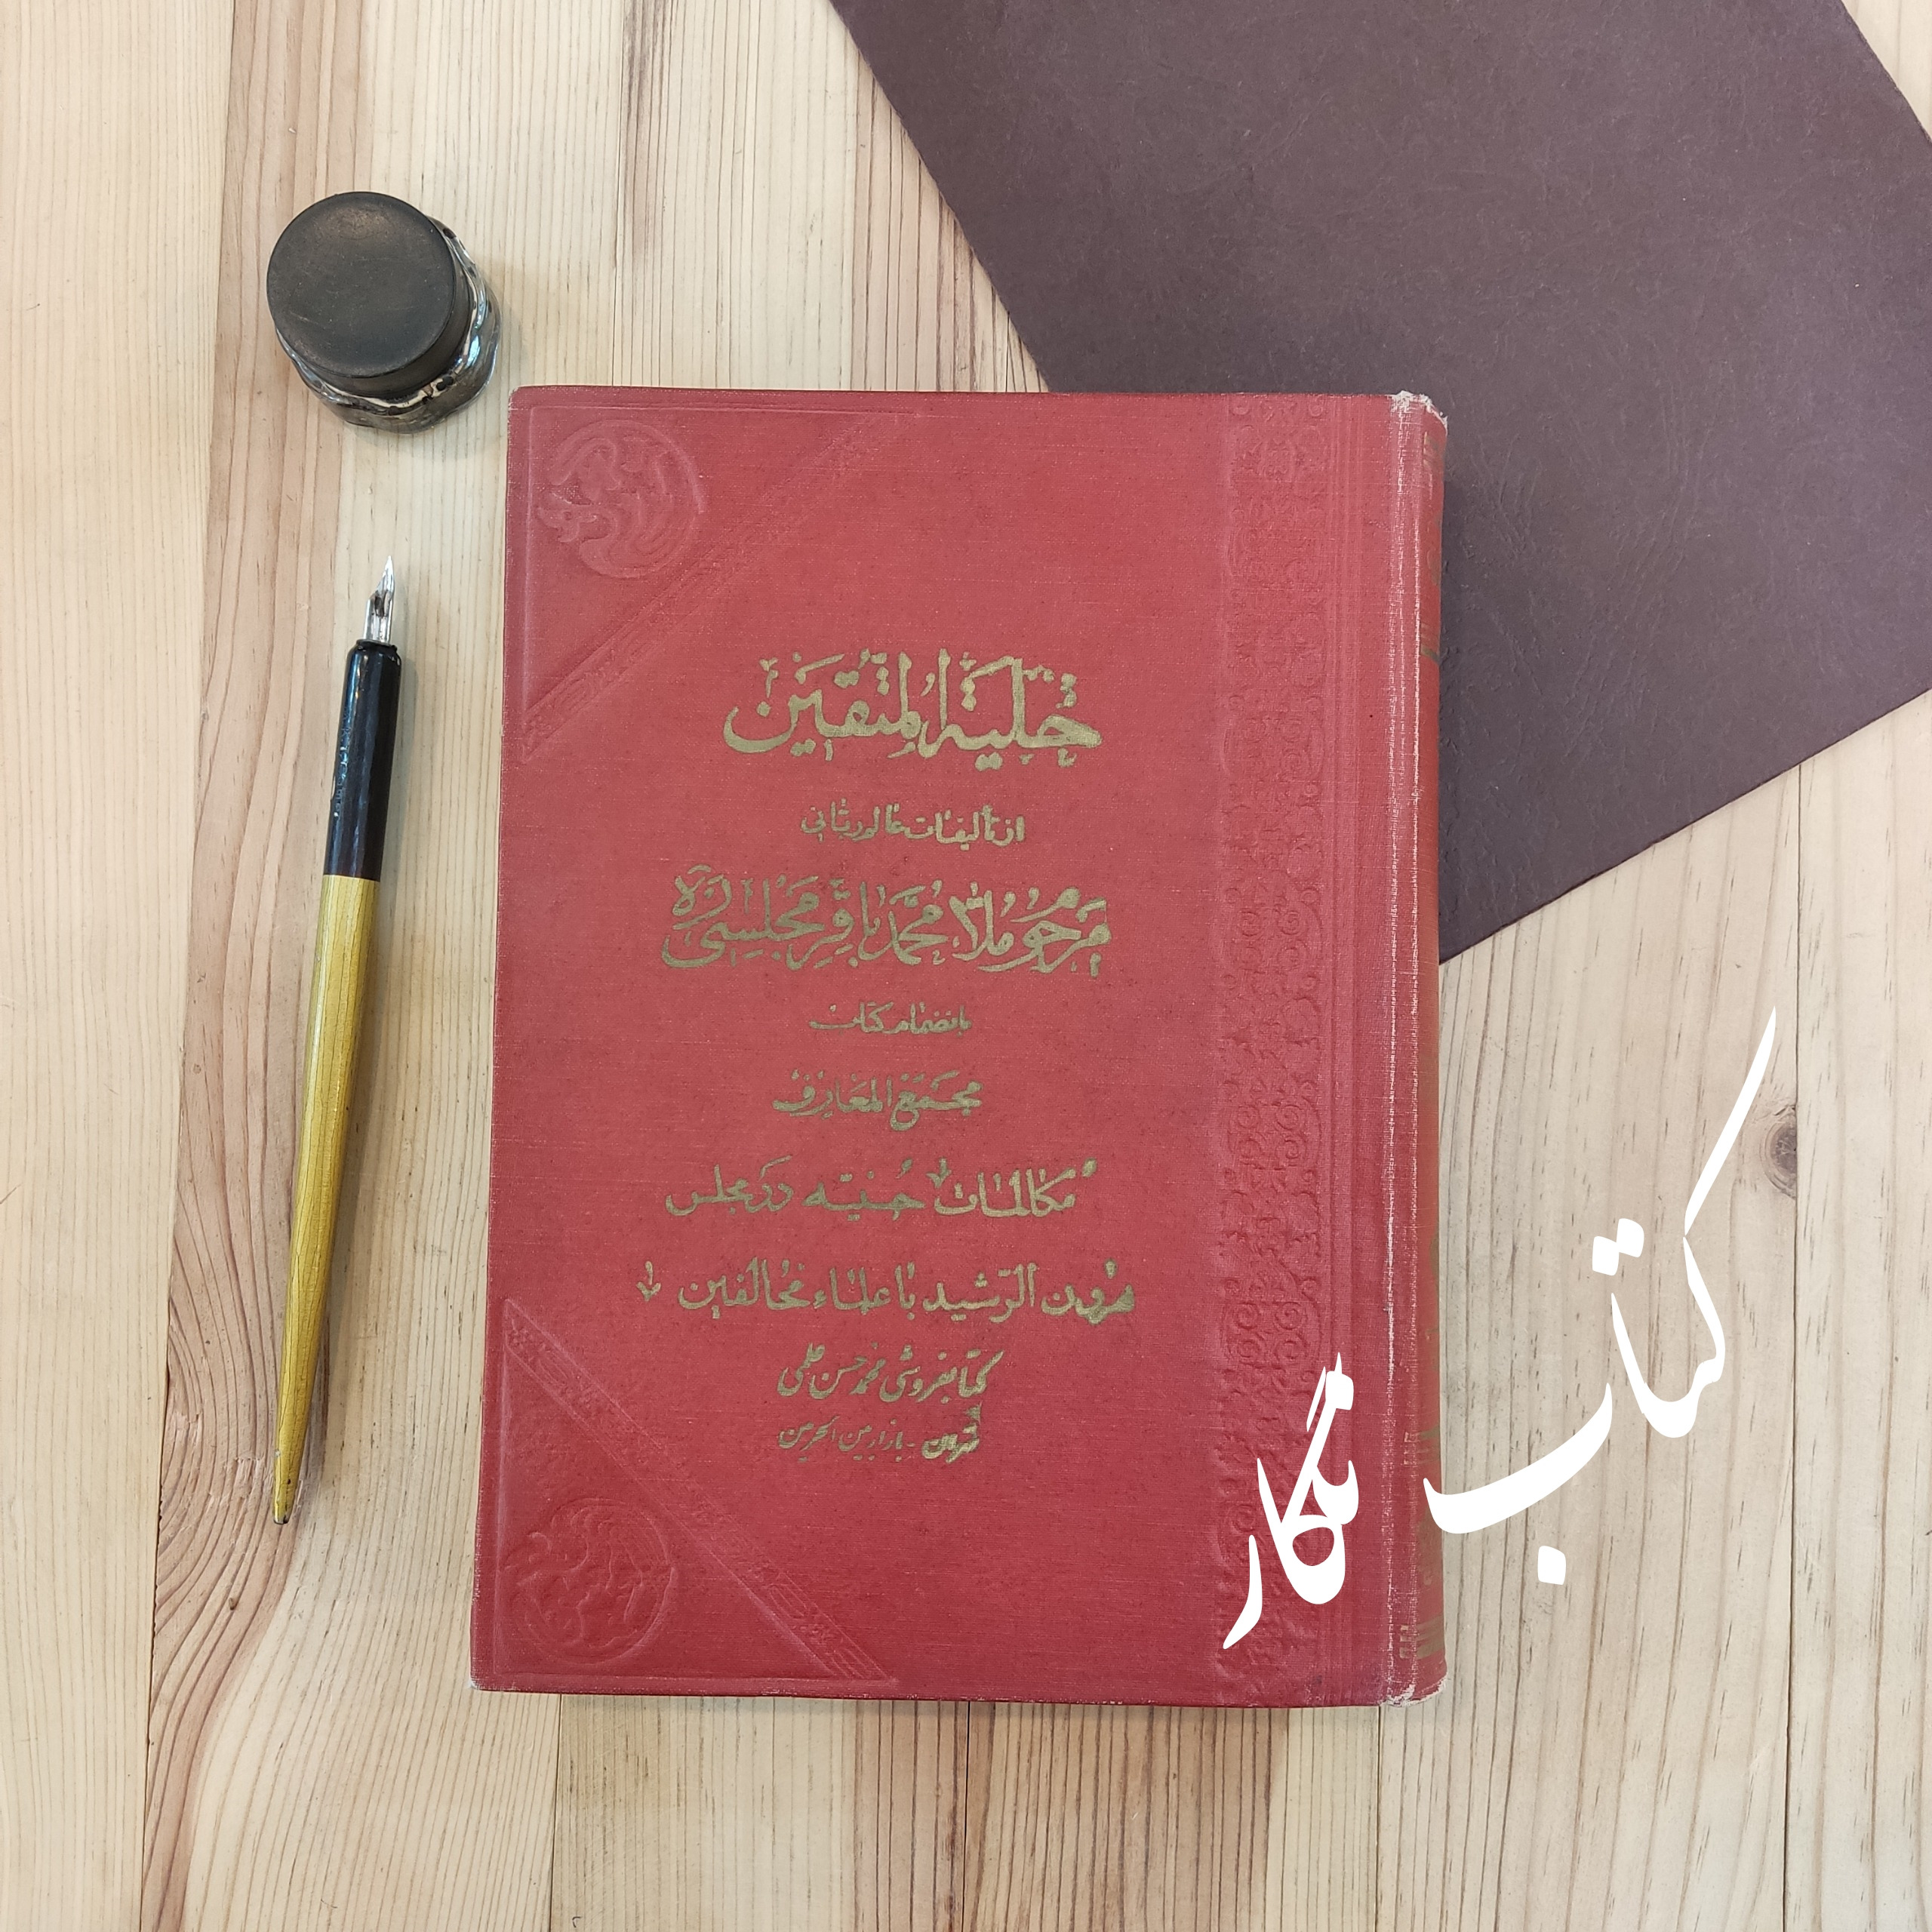 حلیة المتقین
از تألیفات عالم ربانی
مرحوم ملا محمد باقر مجلسی ره
بانضمام کتاب
مجمع المعارف
و مکالمات حسنیه در مجلس
هرون الرشید با علماء مخالفین
کتابفروشی محمد حسن علمی
تهران - بازار بین الحرمین
کتاب نگار